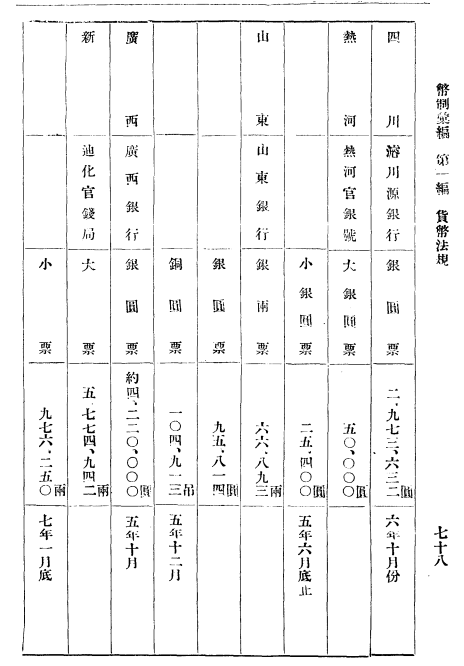 幣制彙編 第一編 貨幣法規 七十八
四川 濬川源銀行 銀圓票 二、九七三、六三二圓 六年十月份
熱河 熱河官銀號 大銀圓票 五〇、〇〇〇圓
小銀圓票 二五、四〇〇圓 五年六月底止
山東 山東銀行 銀兩票 六六、八九三兩
銀圓票 九五、八一四圓
銅圓票 一〇四、九一三吊 五年十二月
廣西 廣西銀行 銀圓票 約四、二二〇、〇〇〇圓 五年十月
新 迪化官錢局 大票 五、七七四、九四二兩
小票 九七六、二五〇兩 七年一月底